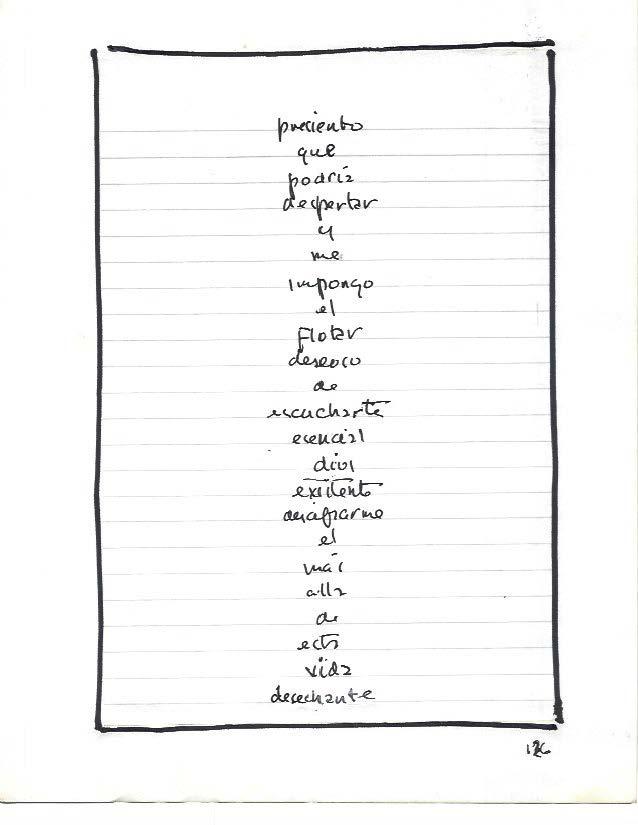 presiento
que
podria
despertar
y
me
impongo
el
flotar
deseoso
de
escucharte
esencial
divi
existento
descifrarme
el
más
alla
de
esta
vida
desechante
126